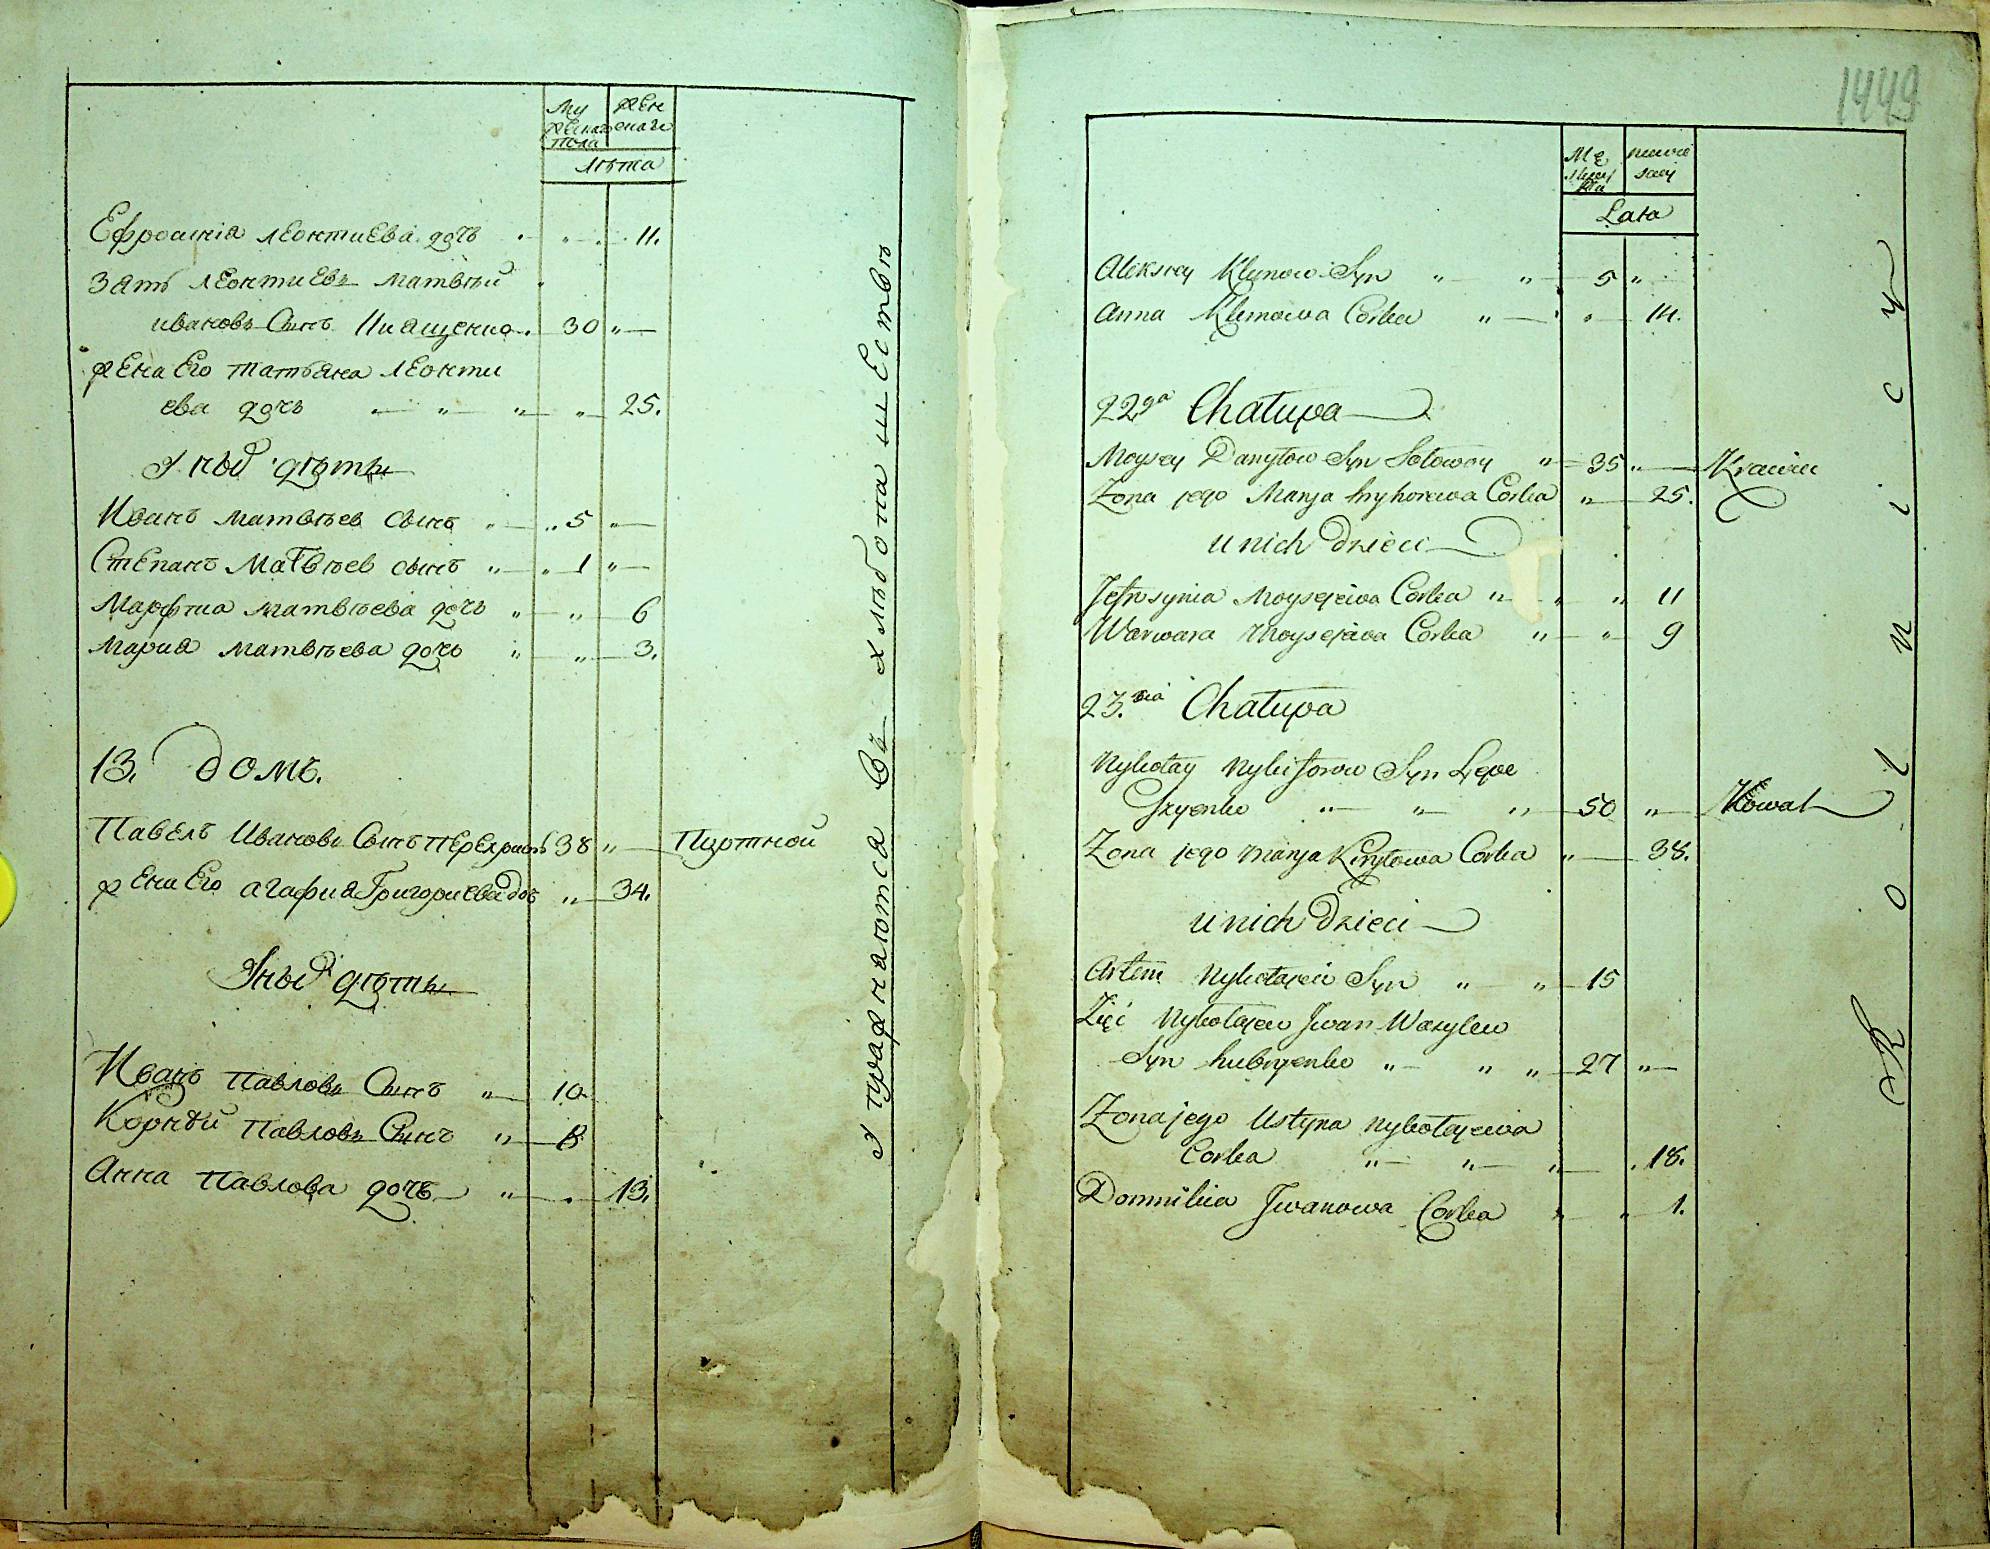 Му
жескаго
пола
жен
скаго
Лѣта
Ефросинія Леонтиева дочь 11.
Зять Леонтиевъ Матвѣй
Ивановъ Сынъ Пиащенко 30 „
жена Его Татьяна Леонти
ева дочь „ „ „ „ 25.
У нѣй дѣти
Иванъ Матвѣев сынъ „ „ 5 „
Степанъ Матвѣев сынъ „ „ 1 „
Марфта Матвѣева дочь „ „ 6
Мария Матвѣева дочь „ „ 3.
13. домъ.
Павелъ Ивановъ Сынъ Перехристъ 38 „ Портной
жена Его Агафия Григориева доч „ 34.
У нѣй дѣти
Иванъ Павловъ Сынъ „ 10
Корнѣй Павловъ Сынъ „ 8
Анна Павлова дочь „ 13.
Упражнаются Въ хлѣбопашествѣ
1449
Mę
skiey
płci
niewie
sciey
Lata
Alexsiey Klymow Syn „ „ 5 „
Anna Klimowa Corka „ „ 14.
22ga Chałupa
Moysey Danyłow Syn Sołowoy „ 35 „ Krawiec
Zona jego Marya Hryhorewa Corka „ 25.
u nich Dzieci
Jefrosynia Moysejewa Corka „ „ „ 11
Warwara Moysejewa Corka „ „ 9
23.cia Chałupa
Nykołay Nykiforow Syn Lepe
Szyenko „ „ „ 50 „ Kowal
Zona jego Marya Kiryłowa Corka „ 38.
u nich Dzieci
Artem Nykołajew Syn „ „ 15
Zięć Nykołajew Jwan Wasylew
Syn Hubryenko „ „ „ 27 „
Zona jego Ustyna Nykołajewa
Corka „ „ „ 18.
Domnikia Jwanowa Corka „ „ 1.
Rolnicy